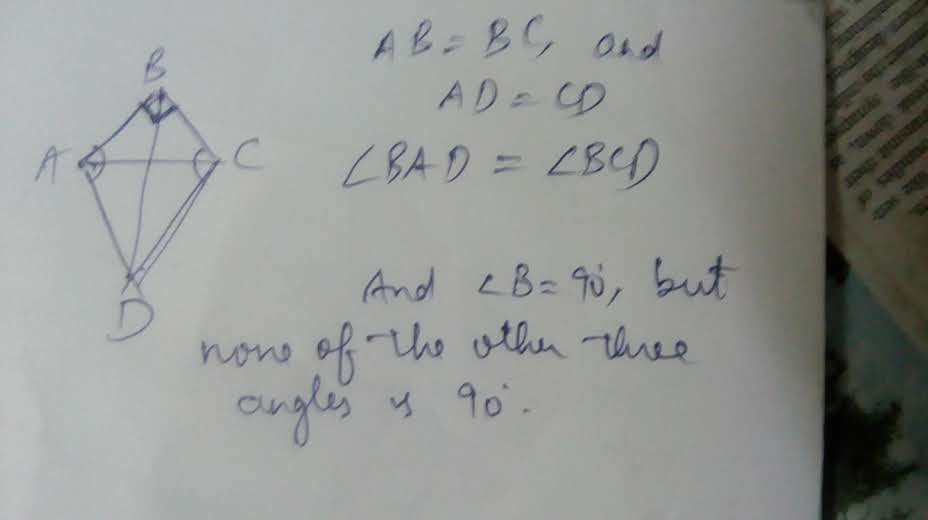 AB = BC, and
AD = CD
∠BAD = ∠BCD
And ∠B = 90°, but
none of the other three
angles is 90°.
B
A
C
D